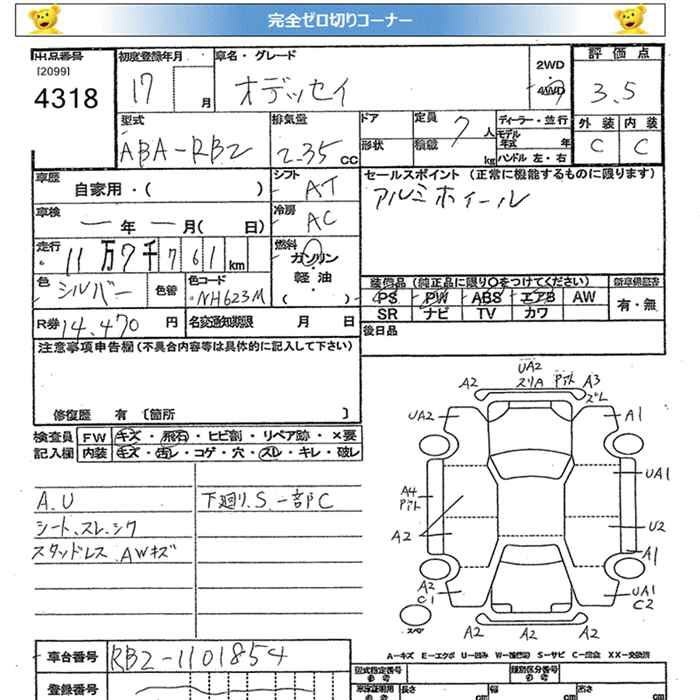 完全ゼロ切りコーナー
出品番号
[2099]
4318
初度登録年月
17 月
車名・グレード
オデッセイ
2WD
4WD
評価点
3.5
型式
ABA-RB2
排気量
2.35 CC
ドア
形状
定員
7 人
積載
kg
ディーラー・並行
モデル
年式 年
ハンドル 左・右
外装 内装
C C
車歴
自家用・( )
シフト
AT
セールスポイント (正常に機能するものに限ります)
アルミホイール
車検
年 月( 日)
冷房
AC
走行
11万7千761km
燃料
ガソリン
・
軽油
( )
色
シルバー
色替
色コード
NH623M
装備品 (純正品に限り○をつけてください)
PS PW ABS エアB AW
SR ナビ TV カワ
新車保証書
有・無
R券 14,470 円
名変通知期限 月 日
後日品
注意事項申告欄(不具合内容等は具体的に記入して下さい)
修復歴 有 〔箇所 〕
検査員 FW キズ・飛石・ヒビ割・リペア跡・×要
記入欄 内装 キズ・汚レ・コゲ・穴・スレ・キレ・破レ
A.U
シート、スレ、シワ
スタッドレス、AWキズ
下廻り、S、一部C
UA2
A2 スリA ピホト A3
ズレ
UA2 A1
UA1
A4
ピホト
U2
A2
A1
A2
C1
UA1
C2
スペア
A2 A2 A2
A-キズ E-エクボ U-凹み W-補修跡 S-サビ C-腐食 XX-交換済
車台番号 RB2-1101854
登録番号
型式指定番号
参考
類別区分番号
参考
車庫証明用
参考
長さ cm
幅 cm
高さ cm